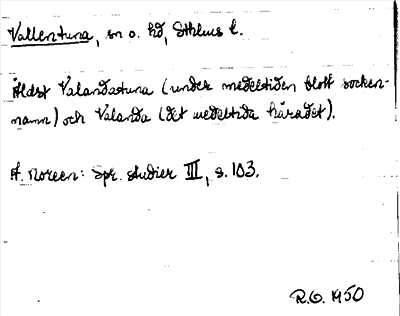 Vallentuna, sn o. hd, Sthlms l.
Äldst Valandastuna (under medeltiden blott socken-
namn) och Valanda (det medeltida häradet).
A. Noreen: Spr. studier III, s. 103.
R.O. 1950